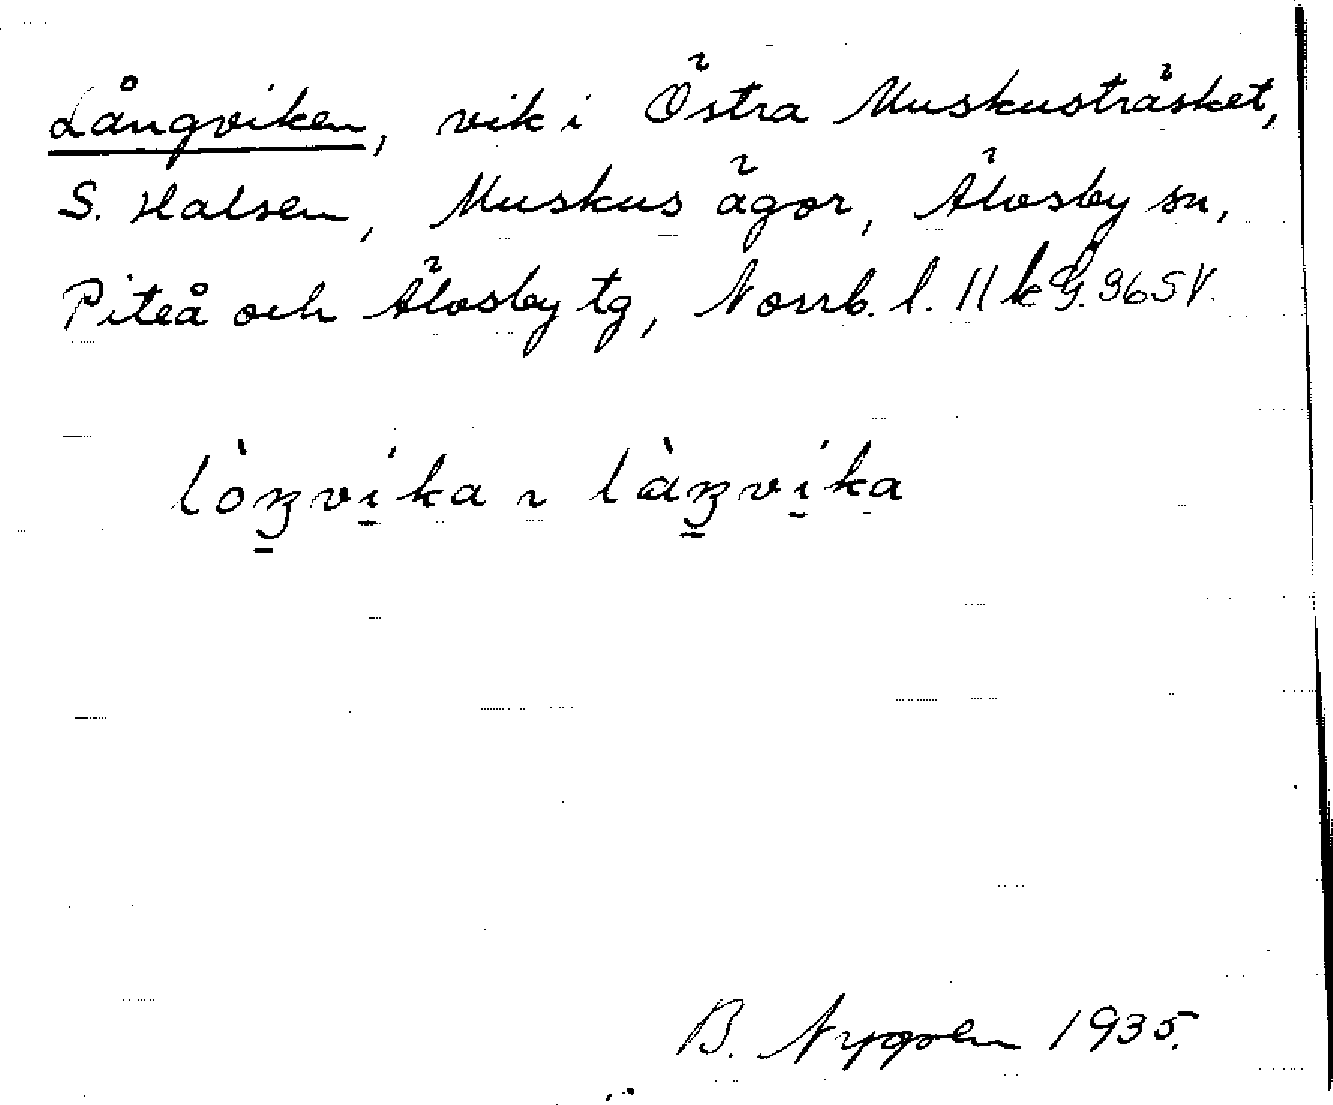 Långviken, vik i Östra Muskusträsket,
S. Halsen, Muskus ägor, Älvsby sn,
Piteå och Älvsby tg, Norrb. l. 11 k G. 965 V.
lòŋvíka ~ làŋvíka
B. Nygren 1935.